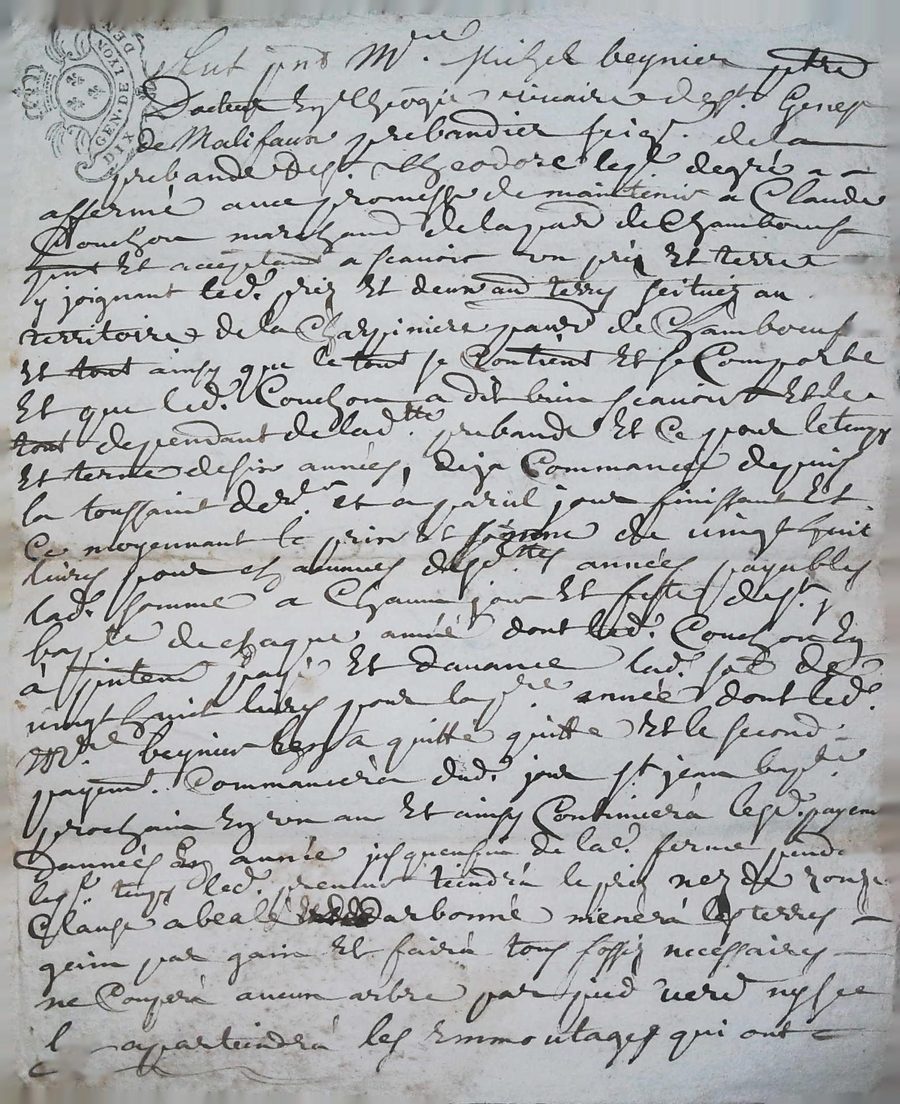 GEN DE LYON
DIX DEN
Fut pnt Mre. Michel beynier ptre
Docteur en theologie vicaire de st. Genest
de Malifaux prebandier de la
prebande de st. Theodore leql degré a
affermé avec promesse de maintenir a Claude
Couchon marchand de la par de Chambœuf
pnt Et acceptant a scavoir un pré Et terre
y joignant led. prez Et deux terres scituez au
territoire de la Charpiniere parr de Chambœuf
Et tout ainsy que le tout se Contient Et se Comporte
Et que led. Couchon a dit bien scavoir Et le
tout dependant de ladtte. prebande Et Ce pour le temps
Et terme de six années, deja Commancé depuis
la toussaint derre et a pareil jour finissant Et
Ce moyennant le prix Et somme de vingt huit
livres pour chacunnes desdttes années payables
lad. somme a Chacun jour Et feste de st. j
bapte de chaque année dont led. Couchon En
à pntem payé Et davance lad. so de
vingt huit livres pour la pre. année dont led.
Mre beynier la quitté quitte Et le second
payemt. Commancera dud. jour st jean bapte
prochain En un an Et ainsy Continuera lesd. payem
dannées En année jusquen fin de lad. ferme pend
lesd. temps led. preneur tiendra le prez net de ronze
Clauze abealé arbonné menera les terres
gain par gain Et faira tous fossez necessaires
ne Coupera aucun arbre par pied verd ny sec
l apartiendra les Emmoutages qui ont